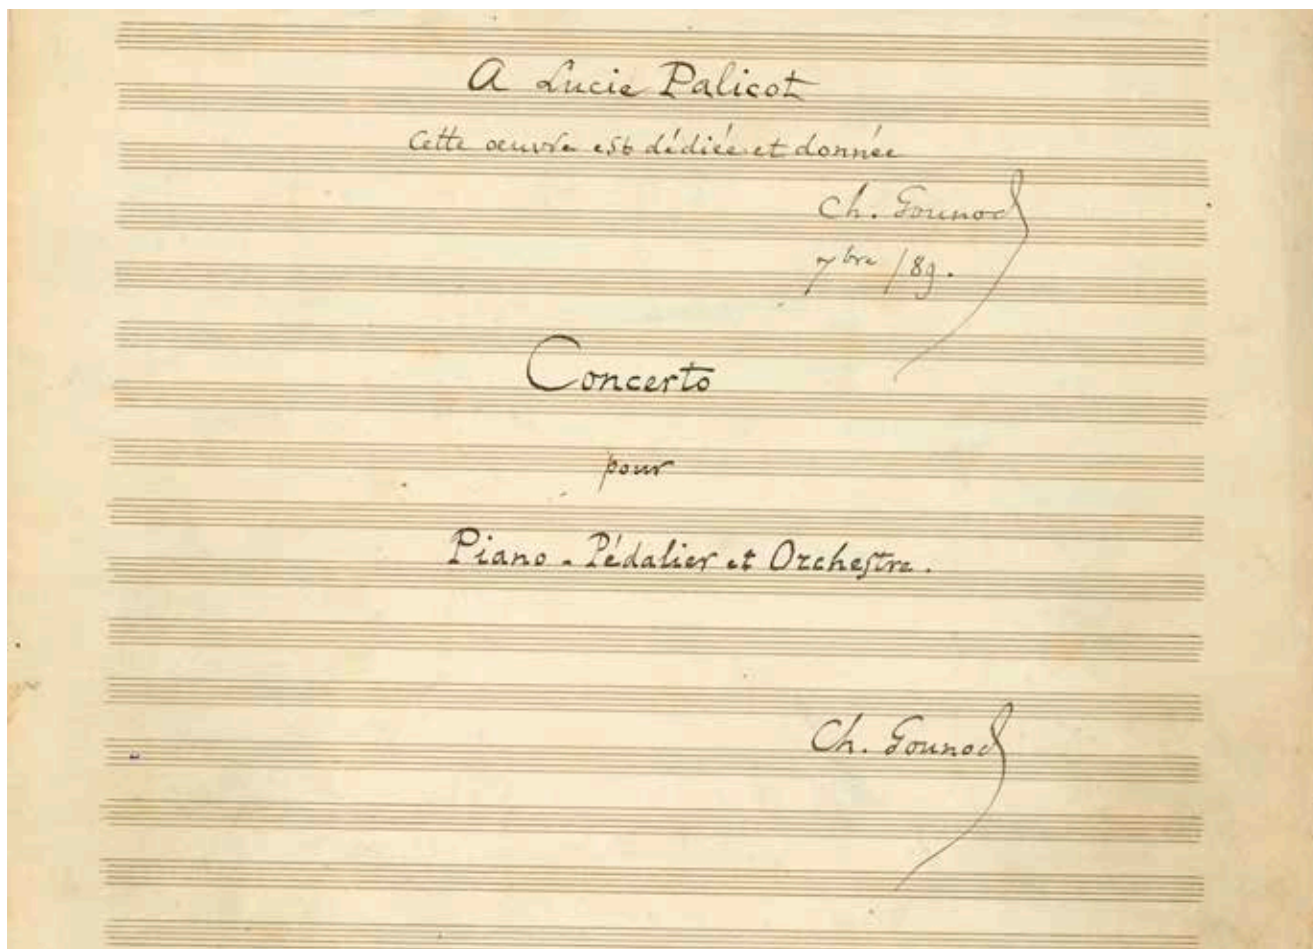 A Lucie Palicot
Cette oeuvre est dédiée et donnée
Ch. Gounod
7bre /89.
Concerto
pour
Piano-Pédalier et Orchestre.
Ch. Gounod